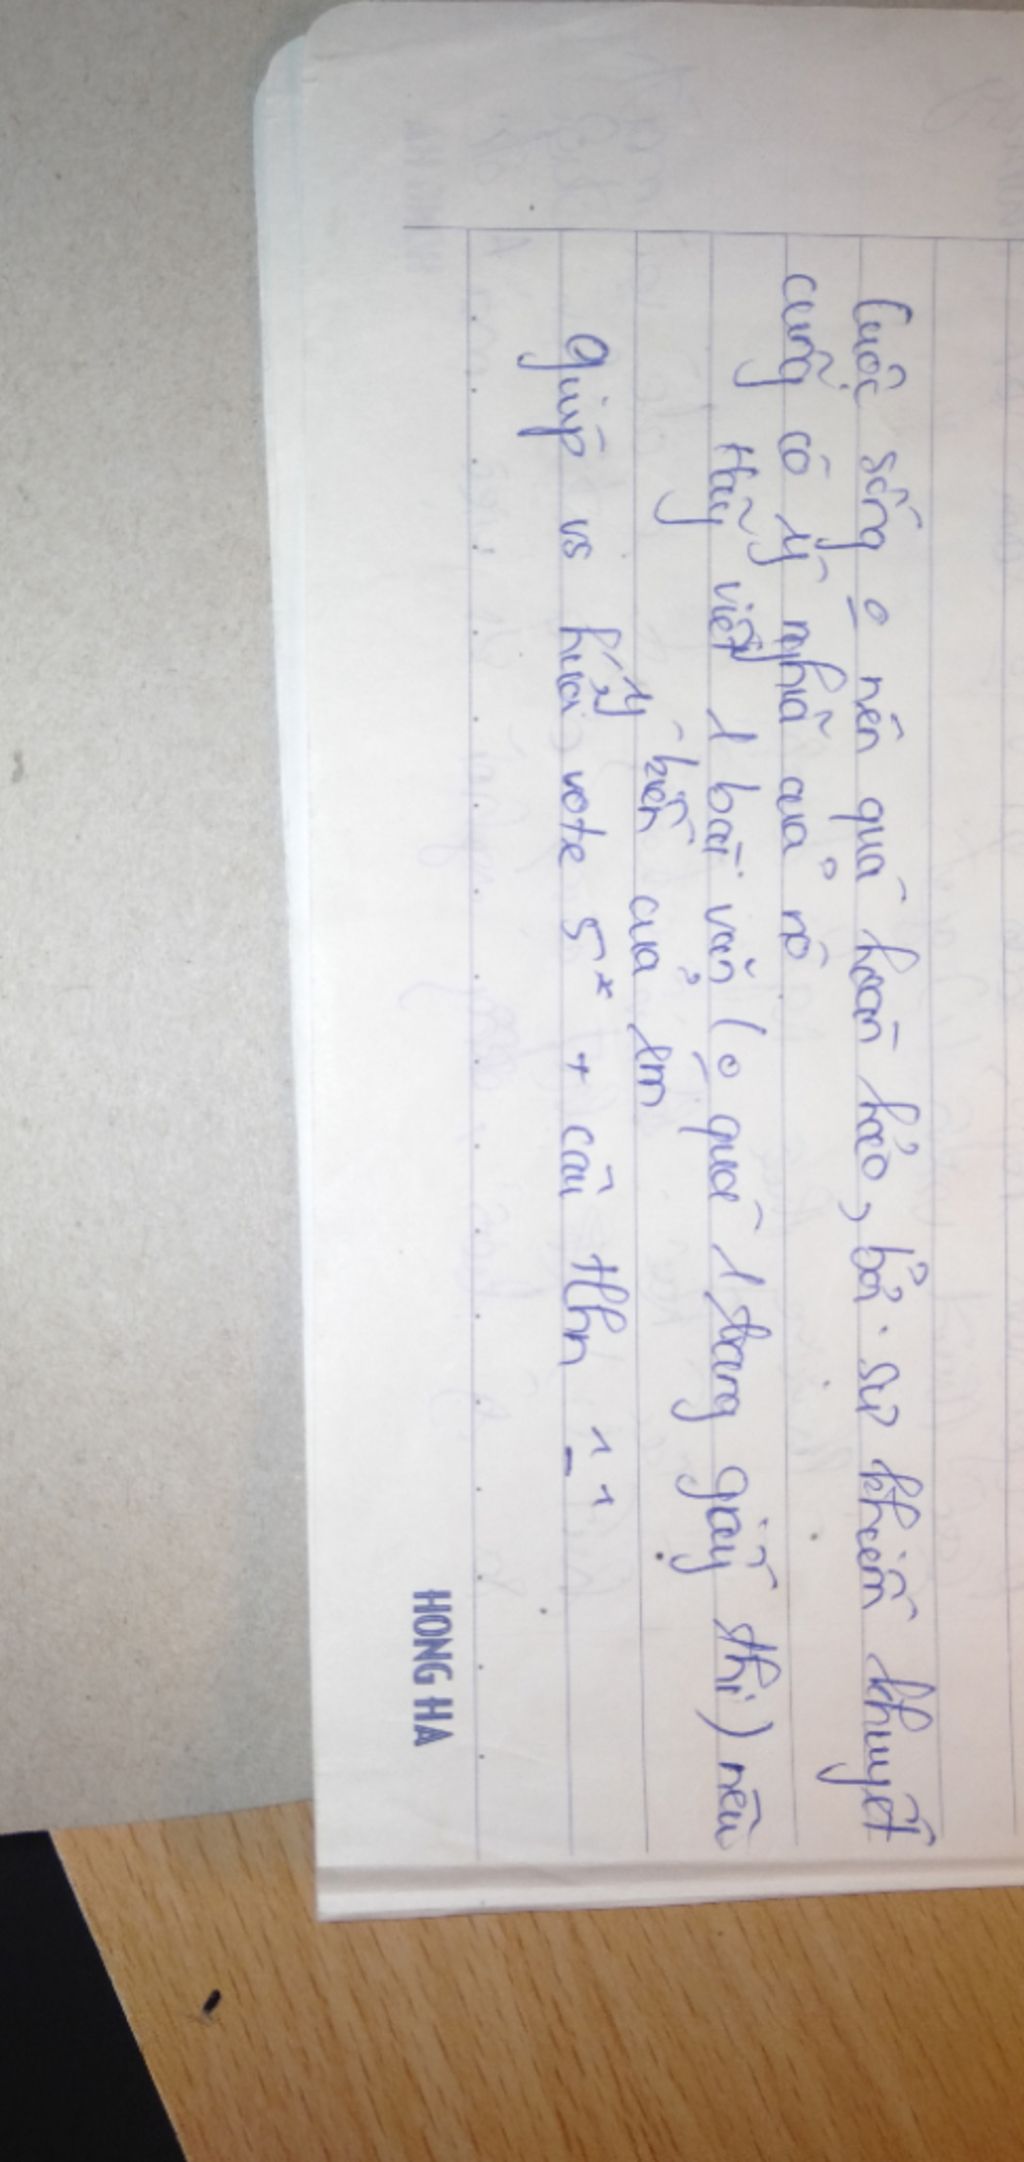 Cuộc sống o nên quá hoàn hảo, bởi sự khiếm khuyết
cũng có ý nghĩa của nó
Hãy viết 1 bài văn (o quá 1 trang giấy thi) nêu
ý kiến của em
giúp vs hứa vote 5* + cần tlhn ^_^
HONG HA